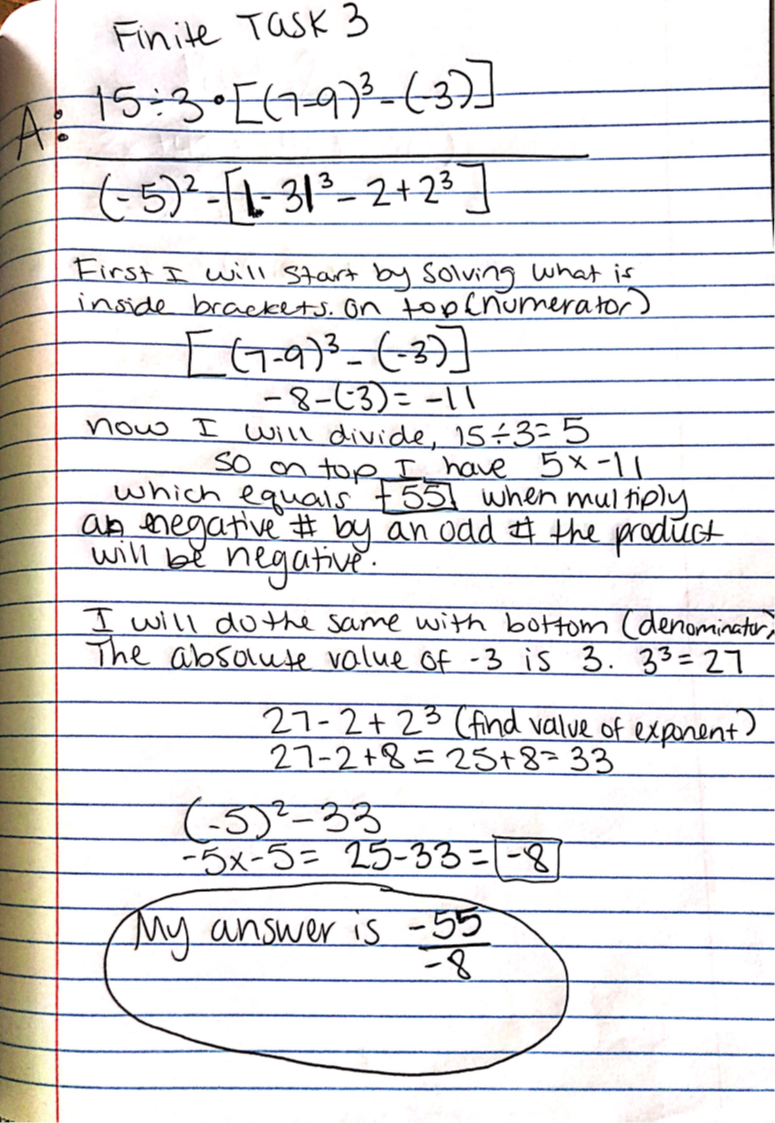 Finite Task 3
A: 15÷3•[(7-9)³-(-3)]
(-5)²-[|-3|³-2+2³]
First I will start by solving what is
inside brackets. on top (numerator)
[(7-9)³-(-3)]
-8-(-3)=-11
now I will divide, 15÷3=5
so on top I have 5x-11
which equals -55 when multiply
an negative # by an odd # the product
will be negative.
I will do the same with bottom (denominator)
The absolute value of -3 is 3. 3³=27
27-2+2³ (find value of exponent)
27-2+8=25+8=33
(-5)²-33
-5x-5= 25-33=-8
My answer is -55
-8